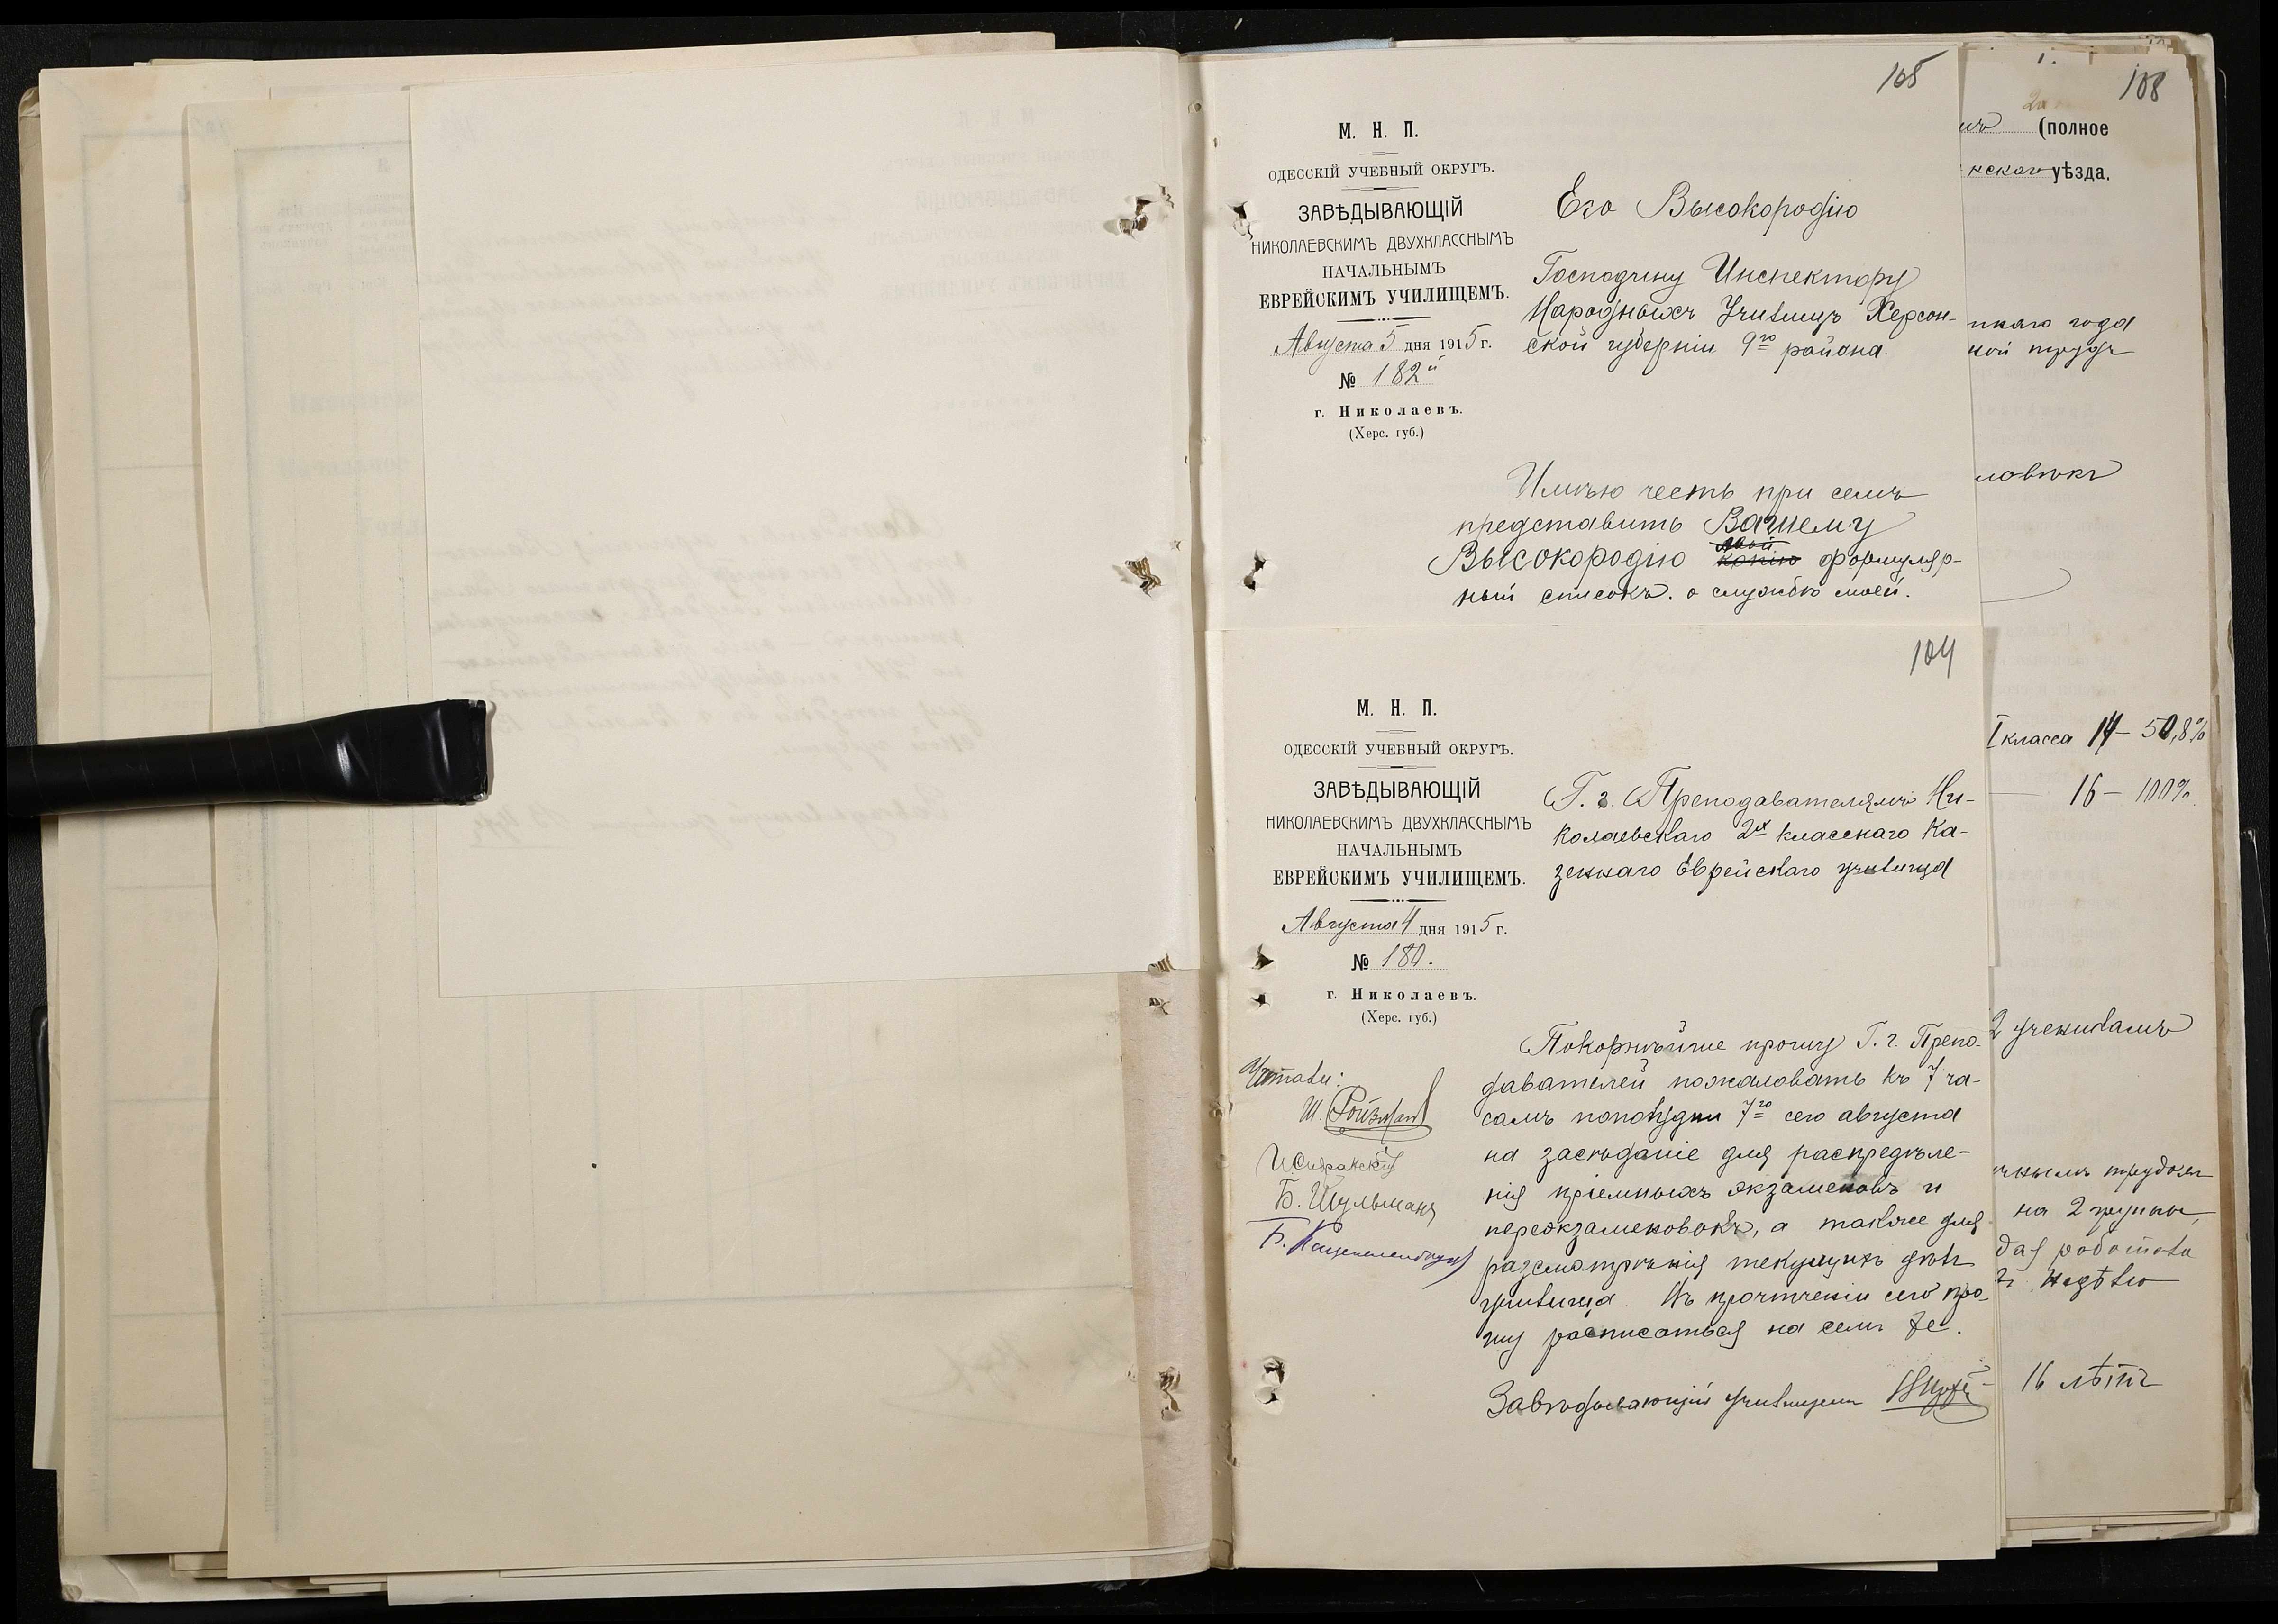 105
М. Н. П.
ОДЕССКІЙ УЧЕБНЫЙ ОКРУГЪ.
ЗАВѢДЫВАЮЩІЙ
НИКОЛАЕВСКИМЪ ДВУХКЛАССНЫМЪ
НАЧАЛЬНЫМЪ
ЕВРЕЙСКИМЪ УЧИЛИЩЕМЪ.
Августа 5 дня 1915 г.
№ 182
г. Николаевъ.
(Херс. губ.)
Его Высокородію
Господину Инспектору
Народныхъ Училищъ Херсон-
ской губерніи 9го района.
Имѣю честь при семъ
представить Вашему
Высокородію копію формуляр-
ный списокъ. о службѣ моей.
104
М. Н. П.
ОДЕССКІЙ УЧЕБНЫЙ ОКРУГЪ.
ЗАВѢДЫВАЮЩІЙ
НИКОЛАЕВСКИМЪ ДВУХКЛАССНЫМЪ
НАЧАЛЬНЫМЪ
ЕВРЕЙСКИМЪ УЧИЛИЩЕМЪ.
Августа 4 дня 1915 г.
№ 180.
г. Николаевъ.
(Херс. губ.)
Г. г. Преподавателямъ Ни-
колаевскаго 2х класснаго Ка-
зеннаго Еврейскаго училища
Покорнѣйше прошу Г. г. Препо-
давателей пожаловать къ 7 ча-
самъ пополудни 7го сего августа
на засѣданіе для распредѣле-
нія пріемныхъ экзаменовъ и
переэкзаменовокъ, а также для
разсмотрѣнія текущихъ дѣлъ
училища. Въ прочтеніи сего про-
шу расписаться на семъ же.
Завѣдывающій училищемъ
Читали:
Ш. Ройзман
Б. Шульманъ
108
(полное
нскаго уѣзда.
года
ловѣкъ
I класса 14 – 50,8%
16 – 100%
2 ученикамъ
трудомъ
на 2 группы,
работала
недѣлю
16 лѣтъ